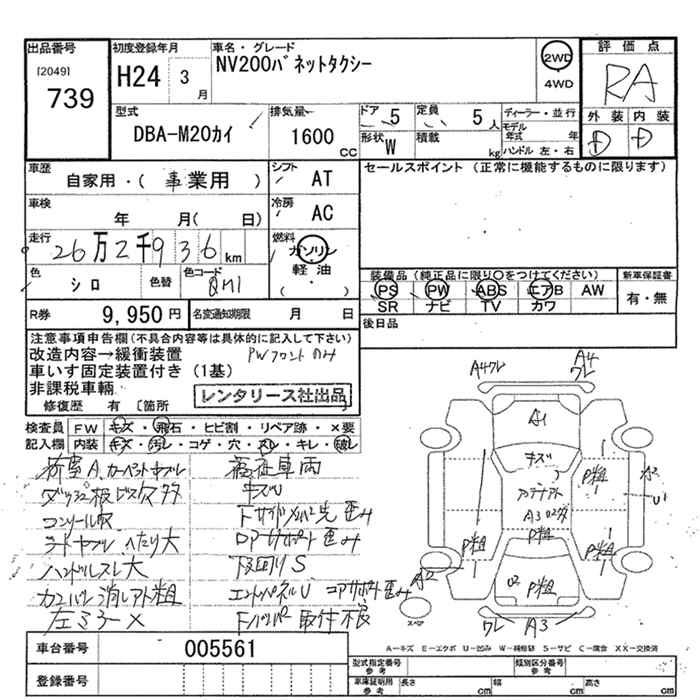 出品番号 初度登録年月 車名・グレード 評価点
[2049] H24 3月 NV200バネットタクシー 2WD RA
739 4WD
型式 排気量 ドア 5 定員 5人 ディーラー・並行 外装 内装
DBA-M20カイ 1600 CC 形状 W 積載 kg モデル年式 年 D D
ハンドル 左・右
車歴 シフト セールスポイント (正常に機能するものに限ります)
自家用・(事業用) AT
車検 冷房
年 月( 日) AC
走行 燃料
26万2千936km ガソリン
色 色替 色コード 軽油
シロ QM1 (・)
装備品 (純正品に限り○をつけてください) 新車保証書
PS PW ABS エアB AW 有・無
SR ナビ TV カワ
R券 9,950円 名変通知期限 月 日 後日品
注意事項申告欄(不具合内容等は具体的に記入して下さい)
改造内容→緩衝装置 PWフロントのみ
車いす固定装置付き (1基)
非課税車輛 レンタリース社出品
修復歴 有 [箇所 ]
検査員 FW キズ・飛石・ヒビ割・リペア跡・×要
記入欄 内装 キズ・汚レ・コゲ・穴・スレ・キレ・破レ
福祉車両
キズU
コンソール
シートヤブレ、ヘたり大
ハンドルスレ大 下回りS
左ミラー× Fバンパー取付不良
A4ワレ A4
ワレ
A1
キズ
P粗 A2
U1
P粗 P粗 P粗
A2 P粗
スペア ワレ A3
A-キズ E-エクボ U-凹み W-補修跡 S-サビ C-腐食 XX-交換済
車台番号 005561
登録番号
型式指定番号 参考 類別区分番号 参考
車庫証明用 参考 長さ cm 幅 cm 高さ cm